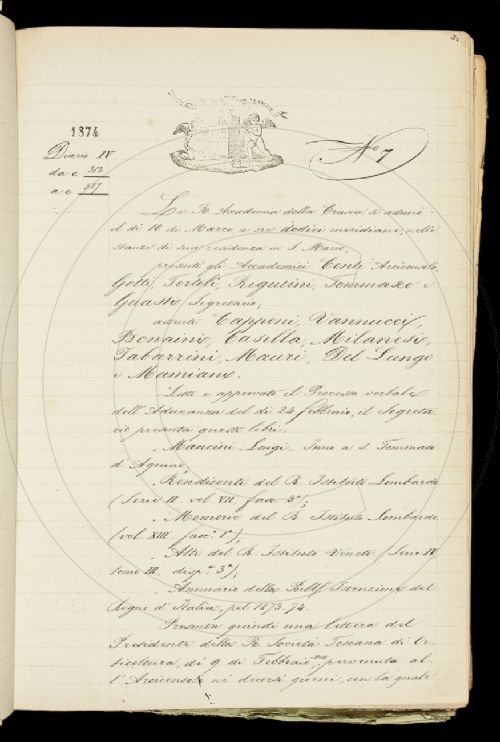 1874
N.º 7
Diario IV
da c. 382
a c. 387
La R. Accademia della Crusca si adunò
il dì 10 di Marzo a ore dodici meridiane, nelle
stanze di sua residenza in S. Marco,
presenti gli Accademici Conti Arciconsolo,
Gotti, Tortoli, Rigutini, Tommaseo e
Guasti Segretario;
assenti Capponi, Vannucci,
Bonaini, Casella, Milanesi,
Tabarrini, Mauri, Del Lungo
e Mamiani.
Letto e approvato il Processo verbale
dell'Adunanza del dì 24 febbraio, il Segreta
rio presenta questi libri:
Mancini Luigi. Inno a S. Tommaso
d'Aquino;
Rendiconti del R. Istituto Lombardo
(Serie II. vol. VII. fasc. 3º);
Memorie del R. Istituto Lombardo
(vol. XIII. fasc. 1º);
Atti del R. Istituto Veneto (Serie IV,
tomo III. disp.ª 3ª);
Annuario della Pubb. Istruzione del
Regno d'Italia, pel 1873-74.
Presenta quindi una lettera del
Presidente della R. Società Toscana di Or
ticultura, di 9 di Febbraio, ma pervenuta al
l'Arciconsolo ne' diversi giorni, con la quale